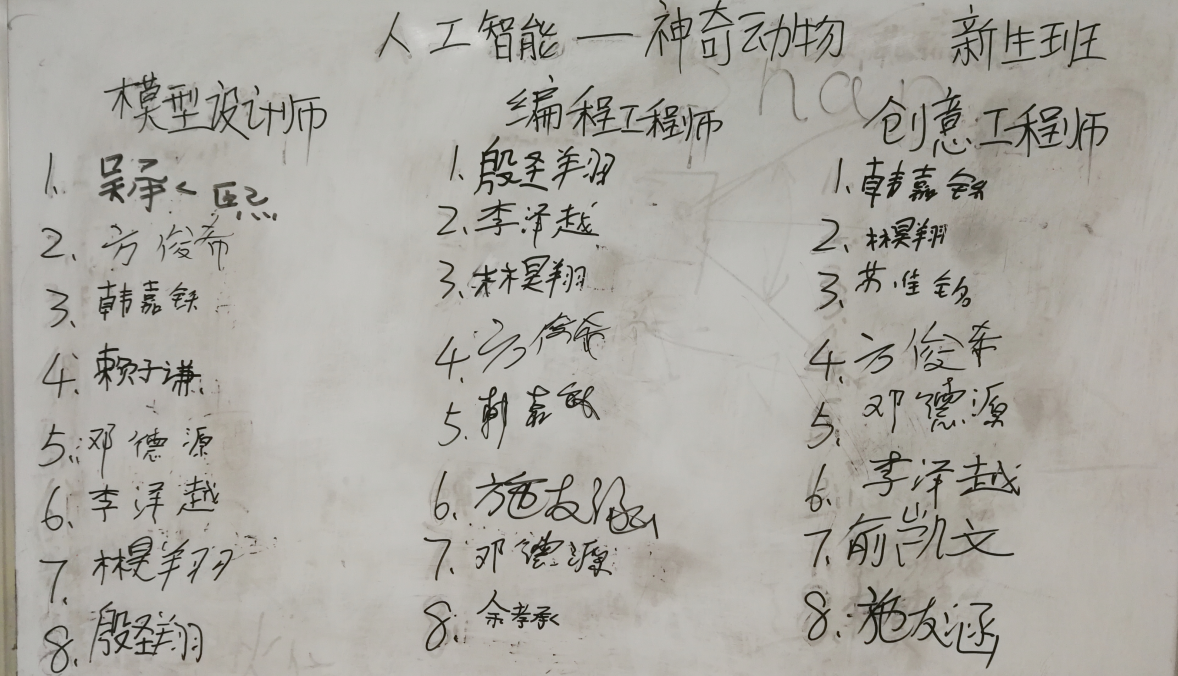 人工智能—神奇动物 新生班
模型设计师
1. 吴承熙
2、方俊希
3、韩嘉铄
4、赖子谦
5、邓德源
6、李泽越
7、林昊翔
8、殷圣翔
编程工程师
1、殷圣翔
2、李泽越
3、林昊翔
4、方俊希
5、韩嘉铄
6、施友涵
7、邓德源
8、余孝承
创意工程师
1、韩嘉铄
2、林昊翔
3、苏佳铭
4、方俊希
5、邓德源
6、李泽越
7、俞凯文
8、施友涵